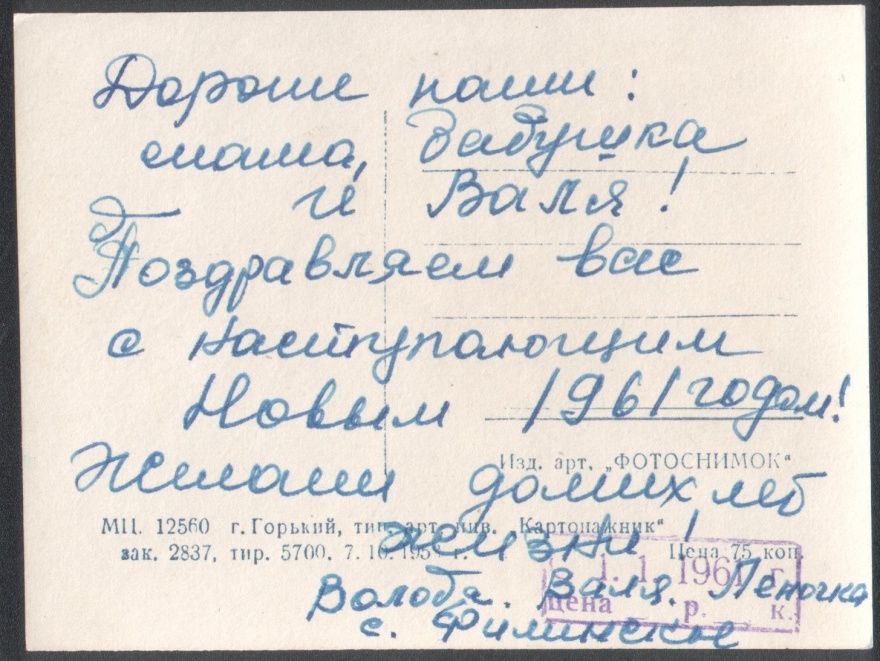 Дорогие наши:
мама, бабушка
и Валя!
Поздравляем вас
с наступающим
Новым 1961 годом!
Изд. арт. „ФОТОСНИМОК"
Желаем долгих лет
МЦ. 12560 г. Горький, тип. арт. инв. „Картонажник"
жизни!
зак. 2837, тир. 5700, 7.10.195 г. Цена 75 коп.
1.1.1961 г.
Володя. Валя. Леночка
цена р. к.
с. Филинское